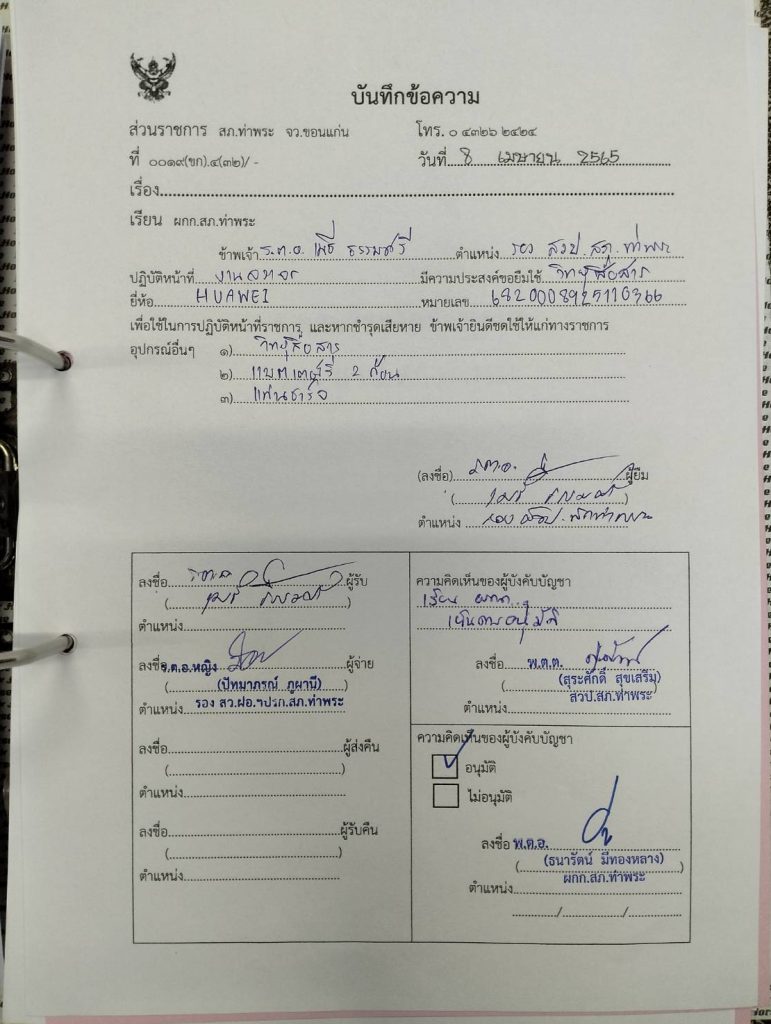 บันทึกข้อความ
ส่วนราชการ สภ.ท่าพระ จว.ขอนแก่น โทร. ๐ ๔๓๒๖ ๒๔๒๔
ที่ ๐๐๑๙(ขก).๔(๓๒)/ - วันที่ 8 เมษายน 2565
เรื่อง
เรียน ผกก.สภ.ท่าพระ
ข้าพเจ้า ร.ต.อ. เมธี ธรรมศรี ตำแหน่ง รอง สวป.สภ.ท่าพระ
ปฏิบัติหน้าที่ งานจราจร มีความประสงค์ขอยืมใช้ วิทยุสื่อสาร
ยี่ห้อ HUAWEI หมายเลข 6820008925110366
เพื่อใช้ในการปฏิบัติหน้าที่ราชการ และหากชำรุดเสียหาย ข้าพเจ้ายินดีชดใช้ให้แก่ทางราชการ
อุปกรณ์อื่นๆ ๑) วิทยุสื่อสาร
๒) แบตเตอรี่ 2 ก้อน
๓) แท่นชาร์จ
(ลงชื่อ) ร.ต.อ. ผู้ยืม
( เมธี ธรรมศรี )
ตำแหน่ง รอง สวป.สภ.ท่าพระ
ลงชื่อ ร.ต.อ. ผู้รับ
( เมธี ธรรมศรี )
ตำแหน่ง
ลงชื่อ ร.ต.อ.หญิง ผู้จ่าย
(ปัทมาภรณ์ ภูผานี)
ตำแหน่ง รอง สว.ฝอ.ฯปรก.สภ.ท่าพระ
ลงชื่อ ผู้ส่งคืน
( )
ตำแหน่ง
ลงชื่อ ผู้รับคืน
( )
ตำแหน่ง
ความคิดเห็นของผู้บังคับบัญชา
เรียน ผกก.
เห็นควรอนุมัติ
ลงชื่อ พ.ต.ต.
(สุระศักดิ์ สุขเสริม)
สวป.สภ.ท่าพระ
ตำแหน่ง
ความคิดเห็นของผู้บังคับบัญชา
อนุมัติ
ไม่อนุมัติ
ลงชื่อ พ.ต.อ.
(ธนารัตน์ มีทองหลาง)
ผกก.สภ.ท่าพระ
ตำแหน่ง
/ /